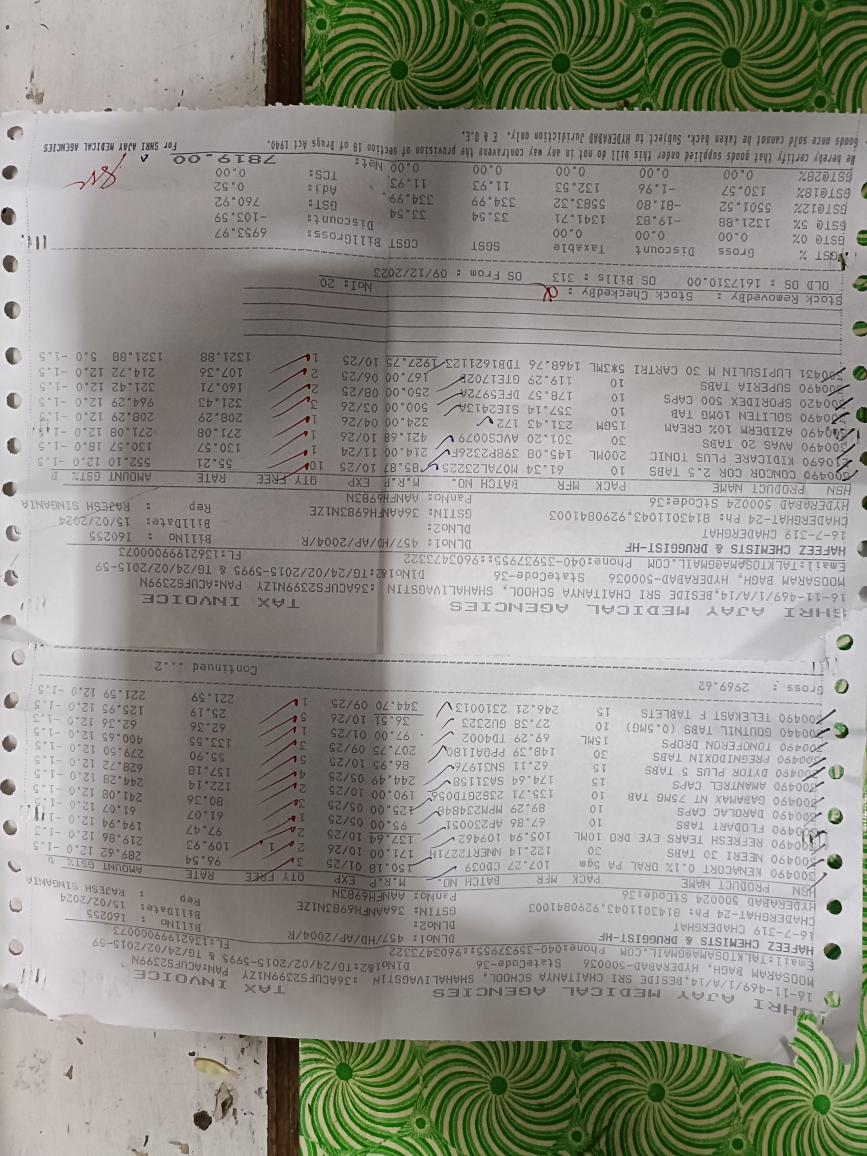 SHRI AJAY MEDICAL AGENCIES TAX INVOICE
16-11-469/1/A/14,BESIDE SRI CHAITANYA SCHOOL, SHAHALIVAGSTIN :36ACUFS2399N1ZY PAN:ACUFS2399N
MOOSARAM BAGH, HYDERABAD-500036 StateCode-36 DlNo1&2:TG/24/02/2015-5995 & TG/24/02/2015-59
Email:TALKTOSAMA@GMAIL.COM Phone:040-35937955::9603473322 FL:13621999000073
HAFEEZ CHEMISTS & DRUGGIST-HF DLNO1: 457/HD/AP/2004/R BillNo : I60255
16-7-319 CHADERGHAT DLNO2: BillDate: 15/02/2024
CHADERGHAT-24 Ph: 8143011043,9290841003 GSTIN: 36AANFH6983N1ZE Rep : RAJESH SINGANIA
HYDERABAD 500024 StCode:36 PanNo: AANFH6983N
HSN PRODUCT NAME PACK MFR BATCH NO. M.R.P EXP QTY FREE RATE AMOUNT GST% D
300490 KENACORT 0.1% ORAL PA 5gm 107.27 CD039 150.18 01/25 3 96.54 289.62 12.0 -1.5
300490 NEERI 30 TABS 30 122.14 NNERT2271H 171.00 10/26 2 1 109.93 219.86 12.0 -1.3
300490 REFRESH TEARS EYE DRO 10ML 105.94 109462 137.64 10/25 2 97.47 194.94 12.0
300490 FLODART TABS 10 67.86 AP230051 95.00 05/25 1 61.07 61.07 12.0 -1.5
300490 DAROLAC CAPS 10 89.29 MPM234848 125.00 05/25 3 80.36 241.08 12.0 -1.5
300490 GABAMAX NT 75MG TAB 10 135.71 23GS2GTD056 190.00 10/25 2 122.14 244.28 12.0 -1.5
300490 AMANTREL CAPS 15 174.64 SA31158 244.49 05/25 4 157.18 628.72 12.0 -1.5
300490 DYTOR PLUS 5 TABS 15 62.11 SN31976 86.95 10/25 5 55.90 279.50 12.0 -1.5
300490 PREGNIDOXIN TABS 30 148.39 PPA0A1180 207.75 09/25 3 133.55 400.65 12.0 -1.5
300490 TONOFERON DROPS 15ML 69.29 TD4002 97.00 01/25 1 62.36 62.36 12.0 -1.3
300490 GOUTNIL TABS (0.5MG) 10 27.38 GU2323 36.51 10/26 5 25.19 125.95 12.0 -1.5
300490 TELEKAST F TABLETS 15 246.21 23100132 344.70 09/25 1 221.59 221.59 12.0 -1.5
Gross : 2969.62
Continued ...2
SHRI AJAY MEDICAL AGENCIES TAX INVOICE
16-11-469/1/A/14,BESIDE SRI CHAITANYA SCHOOL, SHAHALIVAGSTIN :36ACUFS2399N1ZY PAN:ACUFS2399N
MOOSARAM BAGH, HYDERABAD-500036 StateCode-36 DlNo1&2:TG/24/02/2015-5995 & TG/24/02/2015-59
Email:TALKTOSAMA@GMAIL.COM Phone:040-35937955::9603473322 FL:13621999000073
HAFEEZ CHEMISTS & DRUGGIST-HF DLNO1: 457/HD/AP/2004/R BillNo : I60255
16-7-319 CHADERGHAT DLNO2: BillDate: 15/02/2024
CHADERGHAT-24 Ph: 8143011043,9290841003 GSTIN: 36AANFH6983N1ZE Rep : RAJESH SINGANIA
HYDERABAD 500024 StCode:36 PanNo: AANFH6983N
HSN PRODUCT NAME PACK MFR BATCH NO. M.R.P EXP QTY FREE RATE AMOUNT GST% D
300490 CONCOR COR 2.5 TABS 10 61.34 MO7AL23225 85.87 10/25 10 55.21 552.10 12.0 -1.5
210690 KIDICARE PLUS TONIC 200ML 145.08 398P2326F 214.00 11/24 1 130.57 130.57 18.0 -1.5
300490 AVAS 20 TABS 30 301.20 AVCS0079 421.68 10/26 1 271.08 271.08 12.0
300490 AZIDERM 10% CREAM 15GM 231.43 172 324.00 04/26 1 208.29 208.29 12.0 -1.5
300490 SOLITEN 10MG TAB 10 357.14 SIE2413A 500.00 03/26 3 321.43 964.29 12.0 -1.5
300420 SPORIDEX 500 CAPS 10 178.57 DFE5972A 250.00 08/25 2 160.71 321.42 12.0 -1.5
300490 SUPERIA TABS 10 119.29 GTE1702E 167.00 06/25 2 107.36 214.72 12.0 -1.5
300431 LUPISULIN M 30 CARTRI 5*3ML 1468.76 TDB1621123 1927.75 10/25 1 1321.88 1321.88 5.0 -1.5
Stock RemovedBy: Stock CheckedBy : NoI: 20
OLD OS : 1617310.00 OS Bills : 313 OS From : 09/12/2023
GST % Gross Discount Taxable SGST CGST BillGross: 6953.97
GST@ 0% 0.00 0.00 0.00 Discount: -103.59
GST@ 5% 1321.88 -19.83 1341.71 33.54 33.54 GST: 760.92
GST@12% 5501.52 -81.80 5583.32 334.99 334.99 Adj: 0.52
GST@18% 130.57 -1.96 132.53 11.93 11.93 TCS: 0.00
GST@28% 0.00 0.00 0.00 0.00 0.00 Net: 7819.00
We hereby certify that goods supplied under this bill do not in any way contravene the provision of section 18 of Drugs Act 1940. For SHRI AJAY MEDICAL AGENCIES
Goods once sold cannot be taken back. Subject to HYDERABAD Juridiction only. E & O.E.